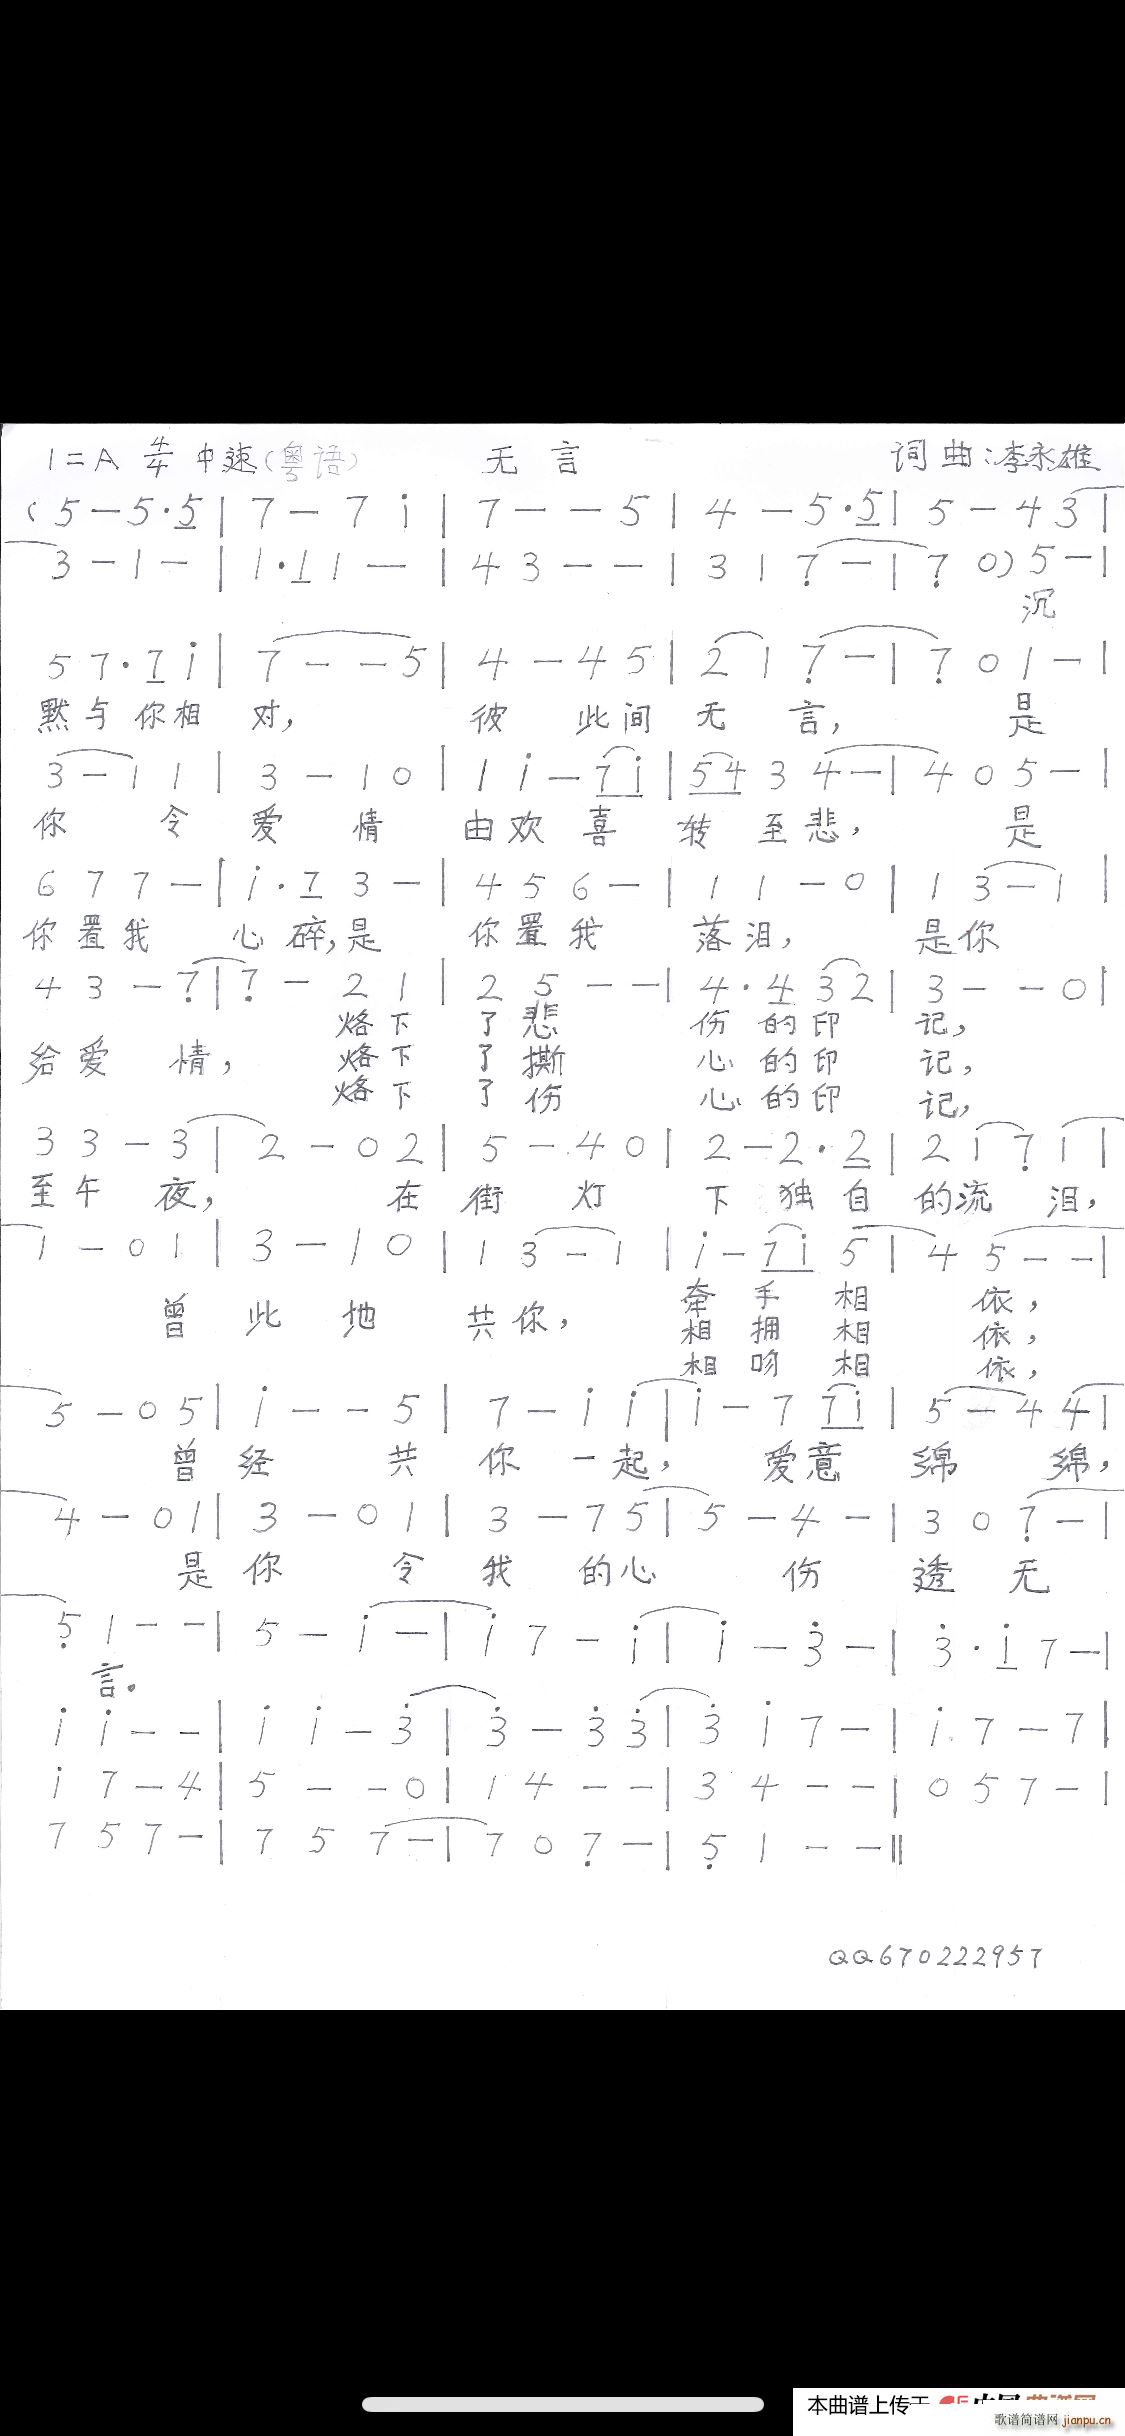 1=A 4/4 中速(粤语) 无言 词曲:李永雄
(5-5·5|7-7i|7--5|4-5·5|5-43|
3-1-|1·11-|43--|317-|70)5-|
沉
57·7i|7--5|4-45|217-|701-|
默与你相对, 彼此间无言, 是
3-11|3-10|1i-7i|5434-|405-|
你令爱情由欢喜转至悲, 是
677-|i·73-|456-|11-0|13-1|
你置我心碎,是你置我落泪, 是你
43-7|7-21|25--|4·432|3--0|
烙下了悲伤的印记,
给爱情, 烙下了撕心的印记,
烙下了伤心的印记,
33-3|2-02|5-40|2-2·2|2171|
至午夜, 在街灯下独自的流泪,
1-01|3-10|13-1|i-7i5|45--|
牵手相依,
曾此地共你, 相拥相依,
相吻相依,
5-05|i--5|7-ii|i-77i|5-44|
曾经共你一起, 爱意绵绵,
4-01|3-01|3-75|5-4-|307-|
是你令我的心伤透无
51--|5-i-|i7-i|i-3-|3·i7-|
言。
ii--|ii-3|3-33|3i7-|i7-7|
i7-4|5--0|14--|34--|057-|
757-|757-|707-|51--‖
QQ670222957
本曲谱上传于
歌谱简谱网 jianpu.cn